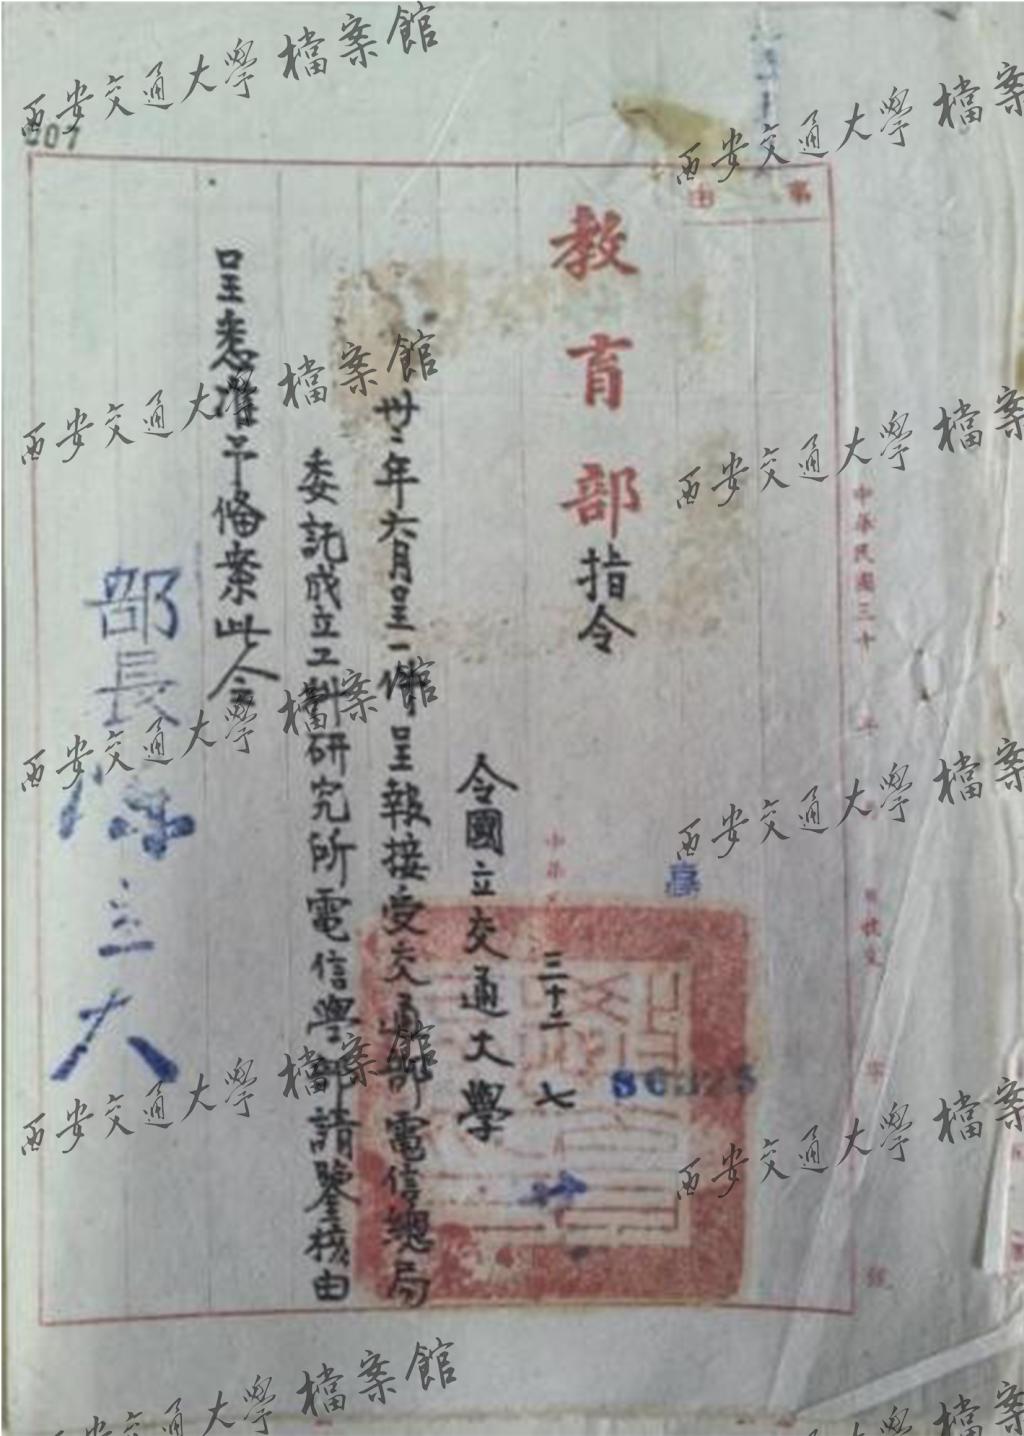 事由
教育部指令
三十二 七
令國立交通大學
卅二年六月呈一件呈報接受交通部電信總局
委託成立工科研究所電信學部請鑒核由
呈悉准予備案此令
部長陳立夫
中華民國三十 年
007
西安交通大學檔案館
西安交通大學檔案
西安交通大學檔案館
西安交通大學檔案
西安交通大學檔案館
西安交通大學檔案
西安交通大學檔案館
西安交通大學檔案
西安交通大學檔案館